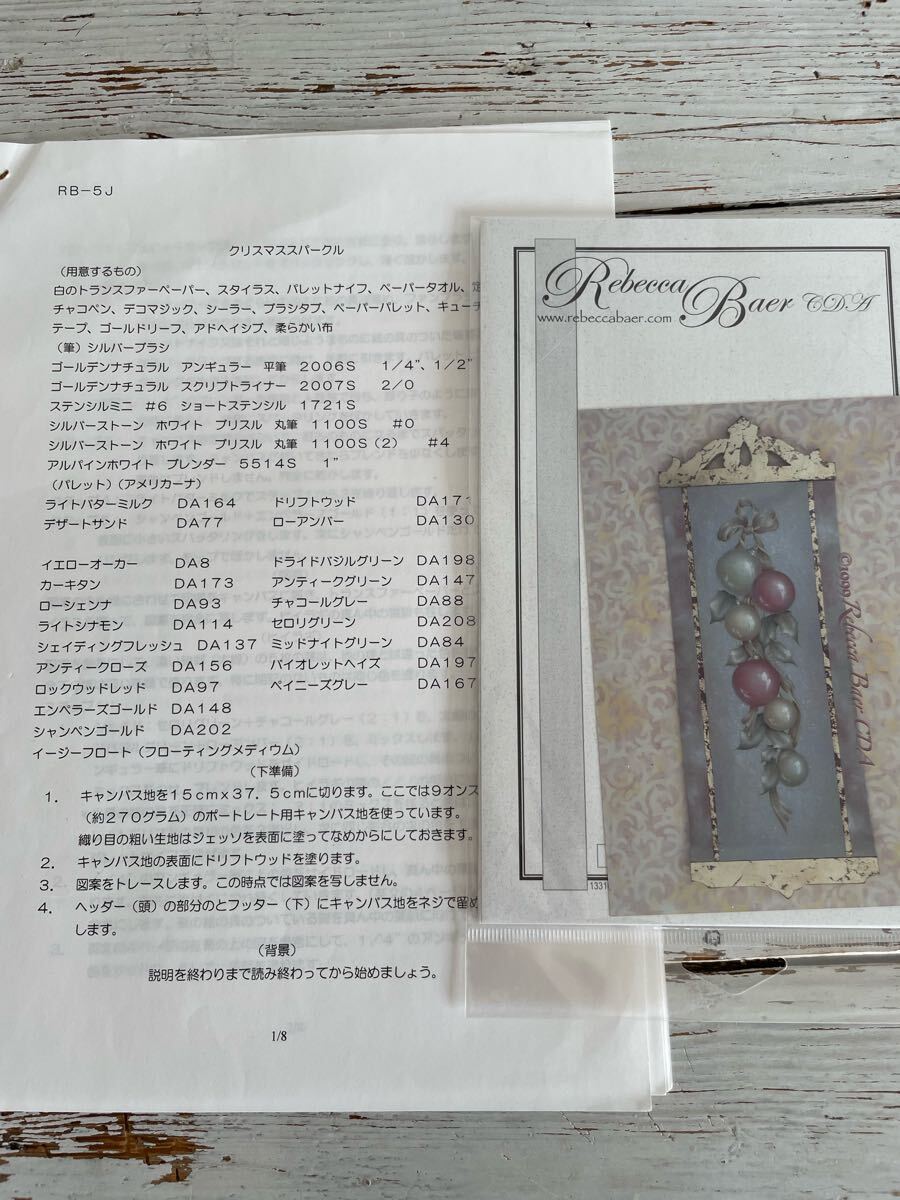 RB-5J
クリスマススパークル
(用意するもの)
白のトランスファーペーパー、スタイラス、パレットナイフ、ペーパータオル、定
チャコペン、デコマジック、シーラー、ブラシタブ、ペーパーパレット、キューテ
テープ、ゴールドリーフ、アドヘイシブ、柔らかい布
(筆)シルバーブラシ
ゴールデンナチュラル アンギュラー 平筆 2006S 1/4"、1/2"
ゴールデンナチュラル スクリプトライナー 2007S 2/0
ステンシルミニ #6 ショートステンシル 1721S
シルバーストーン ホワイト ブリスル 丸筆 1100S #0
シルバーストーン ホワイト ブリスル 丸筆 1100S(2) #4
アルパインホワイト ブレンダー 5514S 1"
(パレット)(アメリカーナ)
ライトバターミルク DA164 ドリフトウッド DA171
デザートサンド DA77 ローアンバー DA130
イエローオーカー DA8 ドライドバジルグリーン DA198
カーキタン DA173 アンティークグリーン DA147
ローシェンナ DA93 チャコールグレー DA88
ライトシナモン DA114 セロリグリーン DA208
シェイディングフレッシュ DA137 ミッドナイトグリーン DA84
アンティークローズ DA156 バイオレットヘイズ DA197
ロックウッドレッド DA97 ペイニーズグレー DA167
エンペラーズゴールド DA148
シャンペンゴールド DA202
イージーフロート(フローティングメディウム)
(下準備)
1. キャンバス地を15cmx37.5cmに切ります。ここでは9オンス
(約270グラム)のポートレート用キャンバス地を使っています。
織り目の粗い生地はジェッソを表面に塗ってなめからにしておきます。
2. キャンバス地の表面にドリフトウッドを塗ります。
3. 図案をトレースします。この時点では図案を写しません。
4. ヘッダー(頭)の部分のとフッター(下)にキャンバス地をネジで留め
します。
(背景)
説明を終わりまで読み終わってから始めましょう。
1/8
Rebecca Baer CDA
www.rebeccabaer.com
©1999 Rebecca Baer CDA
1331